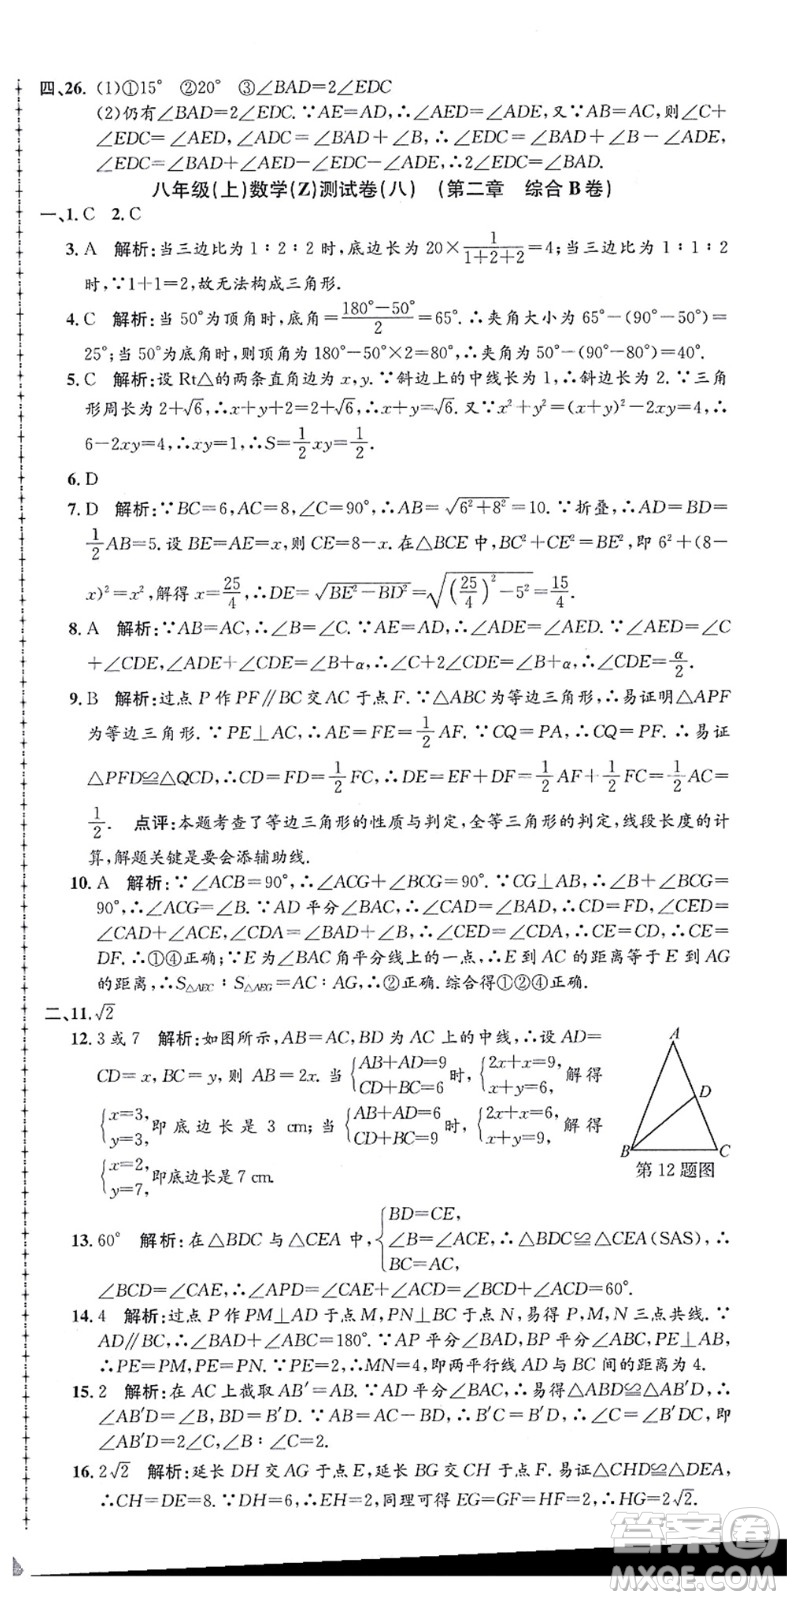 四、26. (1)①15° ②20° ③∠BAD=2∠EDC
(2)仍有∠BAD=2∠EDC. ∵AE=AD,∴∠AED=∠ADE,又∵AB=AC,则∠C+
∠EDC=∠AED,∠ADC=∠BAD+∠B,∴∠EDC=∠BAD+∠B-∠ADE,
∠EDC=∠BAD+∠EDC-∠AED,∴2∠EDC=∠BAD.
八年级(上)数学(Z)测试卷(八) (第二章 综合B卷)
一、1. C 2. C
3. A 解析:当三边比为1∶2∶2时,底边长为20×1/(1+2+2)=4;当三边比为1∶1∶2
时,∵1+1=2,故无法构成三角形.
4. C 解析:当50°为顶角时,底角=(180°-50°)/2=65°. ∴夹角大小为65°-(90°-50°)=
25°;当50°为底角时,顶角为180°-50°×2=80°,∴夹角为80°-(90°-50°)=40°.
5. C 解析:设Rt△的两条直角边为x,y. ∵斜边上的中线长为1,∴斜边长为2. ∵三角
形周长为2+√6,∴x+y+2=2+√6,∴x+y=√6. 又∵x²+y²=(x+y)²-2xy=4,∴
6-2xy=4,∴xy=1,∴S=1/2xy=1/2.
6. D
7. D 解析:∵BC=6,AC=8,∠C=90°,∴AB=√(6²+8²)=10. ∵折叠,∴AD=BD=
1/2AB=5. 设BE=AE=x,则CE=8-x. 在△BCE中,BC²+CE²=BE²,即6²+(8-
x)²=x²,解得x=25/4,∴DE=√(BE²-BD²)=√((25/4)²-5²)=15/4.
8. A 解析:∵AB=AC,∴∠B=∠C. ∵AD=AE,∴∠ADE=∠AED. ∵∠AED=∠C
+∠CDE,∠ADE+∠CDE=∠B+α,∴∠C+2∠CDE=∠B+α,∴∠CDE=α/2.
9. B 解析:过点P作PF∥BC交AC于点F. ∵△ABC为等边三角形,∴易证明△APF
为等边三角形. ∵PE⊥AC,∴AE=FE=1/2AF. ∵CQ=PA,∴CQ=PF. ∴易证
△PFD≌△QCD,∴CD=FD=1/2CF,∴DE=EF+DF=1/2AF+1/2CF=1/2AC=
1/2. 点评:本题考查了等边三角形的性质与判定,全等三角形的判定,线段长度的计
算,解题关键是要会添辅助线.
10. A 解析:∵∠ACB=90°,∴∠ACG+∠BCG=90°. ∵CG⊥AB,∴∠B+∠BCG=
90°,∴∠B=∠ACG. ∵AD平分∠BAC,∴∠CAD=∠BAD,∴CD=FD,∠CED=
∠CAD+∠ACE,∠CDA=∠BAD+∠B,∴∠CED=∠CDA,∴CE=CD,∴CE=
DF. ∴①④正确. ∵E为∠BAC角平分线上的一点,∴E到AC的距离等于E到AG
的距离,∴S△AEC∶S△AEG=AC∶AG,∴②正确. 综合得①②④正确.
二、11. √2
12. 3或7 解析:如图所示,AB=AC,BD为AC上的中线,∴设AD=
CD=x,BC=y,则AB=2x. 当{AB+AD=9, CD+BC=6}时,{2x+x=9, x+y=6,}解得
{x=3, y=3,}即底边长是3 cm;当{AB+AD=6, CD+BC=9}时,{2x+x=6, x+y=9,}解得
{x=2, y=7,}即底边长是7 cm.
A
D
B
C
第12题图
13. 60° 解析:在△BDC与△CEA中,{BD=CE, ∠B=∠ACE, BC=AC,}∴△BDC≌△CEA(SAS),∴
∠BCD=∠CAE,∴∠APD=∠CAE+∠ACD=∠BCD+∠ACD=60°.
14. 4 解析:过点P作PM⊥AD于点M,PN⊥BC于点N,易得M,P,N三点共线. ∵
AD∥BC,∴∠BAD+∠ABC=180°. ∵AP平分∠BAD,BP平分∠ABC,PE⊥AB,
∴PE=PM,PE=PN. ∵PE=2,∴MN=4,即两平行线AD与BC间的距离为4.
15. 2 解析:在AC上截取AB′=AB. ∵AD平分∠BAC,∴易得△ABD≌△AB′D,
∴∠AB′D=∠B,B′D=BD. ∵AB=AC-BD,∴B′C=BD=B′D,∴∠C=∠B′DC,
∴∠AB′D=2∠C,∠B∶∠C=2.
16. 2√2 解析:延长DH交AG于点E,延长BG交CH于点F. 易证△CHD≌△DEA,
∴CH=DE=8. ∵DH=6,∴EH=2,同理可得EG=GF=HF=2,∴HG=2√2.
答案圈
MXQE.COM